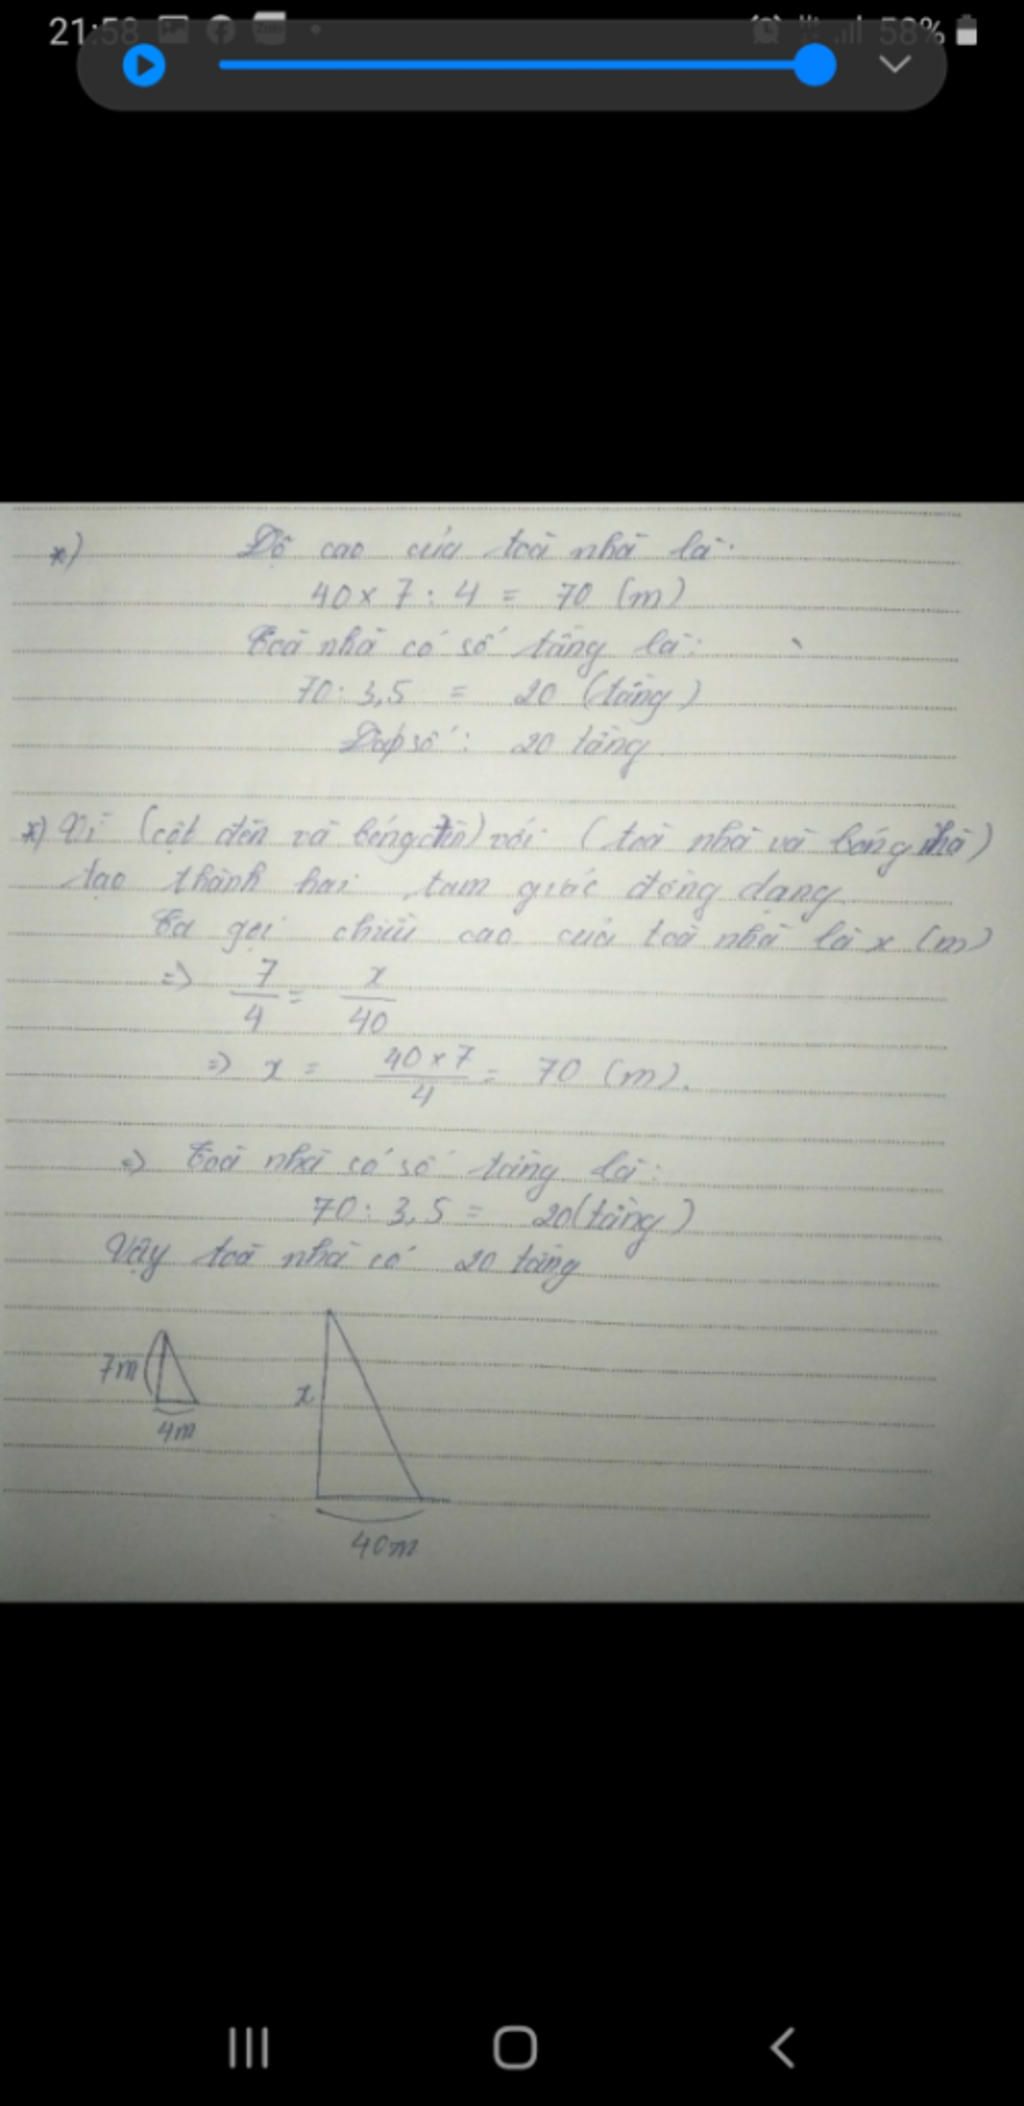 21:58
58%
*) Độ cao của toà nhà là:
40 x 7 : 4 = 70 (m)
Toà nhà có số tầng là:
70 : 3,5 = 20 (tầng)
Đáp số: 20 tầng
*) Vì (cột đèn và bóng đèn) với (toà nhà và bóng nhà)
tạo thành hai tam giác đồng dạng
Ta gọi chiều cao của toà nhà là x (m)
=> 7/4 = x/40
=> x = 40 x 7 / 4 = 70 (m).
=> Toà nhà có số tầng là:
70 : 3,5 = 20 (tầng)
Vậy toà nhà có 20 tầng
7m
4m
x
40m